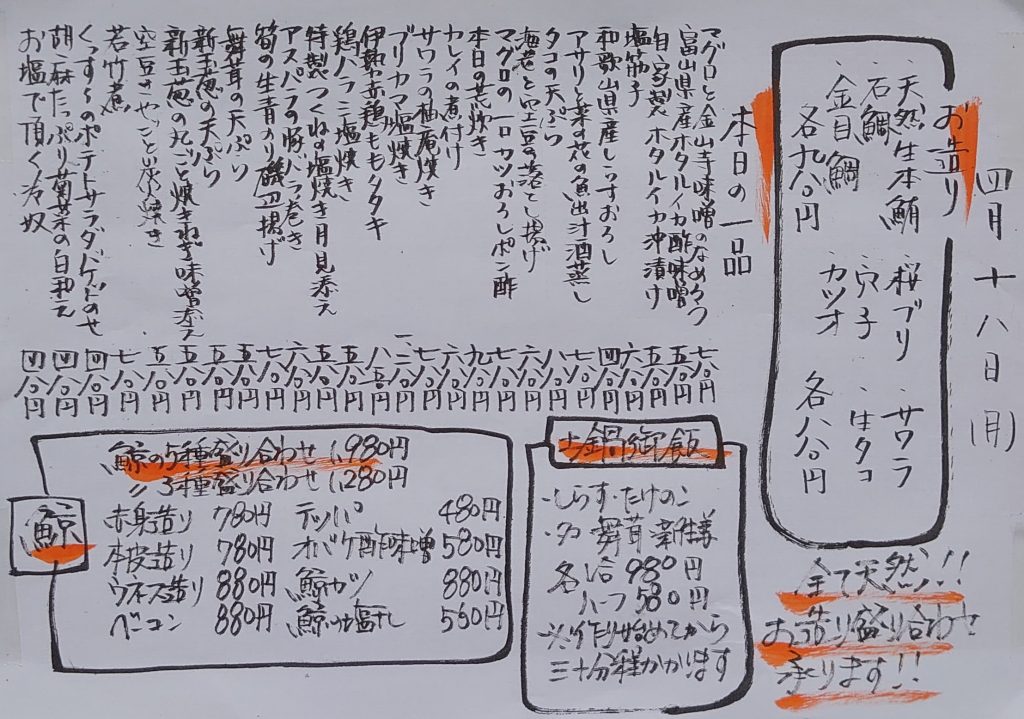 四月十八日(月)
お造り
・天然生本鮪 ・桜ブリ ・サワラ
・石鯛 ・穴子 ・生タコ
・金目鯛 ・カツオ 各八八〇円
各九八〇円
本日の一品
マグロと金山寺味噌のなめろう 七八〇円
富山県産ホタルイカ酢味噌 五八〇円
自家製ホタルイカ沖漬け 五八〇円
塩筋子 六八〇円
和歌山県産しらすおろし 四八〇円
アサリと菜の花の魚出汁酒蒸し 七八〇円
タコの天ぷら 八八〇円
海老と空豆の落とし揚げ 六八〇円
マグロの一口カツおろしポン酢 七八〇円
本日の荒炊き 九八〇円
カレイの煮付け 六八〇円
サワラの柚庵焼き 七八〇円
ブリカマ塩焼き
伊勢赤鶏ももタタキ
鶏ハラミ塩焼き 五八〇円
特製つくねの塩焼き月見添え 五八〇円
アスパラの豚バラ巻き 六八〇円
筍の生青のり磯辺揚げ 七八〇円
舞茸の天ぷら 五八〇円
新玉葱の天ぷら 五八〇円
新玉葱の丸ごと焼きねぎ味噌添え 五八〇円
空豆さやごと炭焼き 五八〇円
若竹煮 七八〇円
くっすへのポテトサラダバゲットのせ 四八〇円
胡麻たっぷり菊菜の白和え 四八〇円
お塩で頂く冷奴 四八〇円
鯨
鯨の5種盛り合わせ 1,980円
〃 3種盛り合わせ 1,280円
赤身造り 780円 テッパ 480円
本皮造り 780円 オバケ酢味噌 580円
ウネス造り 880円 鯨カツ 880円
ベーコン 880円 鯨の塩干し 580円
土鍋御飯
・しらす・たけのこ
・タコ・舞茸・新生姜
各1合 980円
ハーフ 580円
※作り始めてから
三十分程かかります
全て天然!!
お造り盛り合わせ
承ります!!